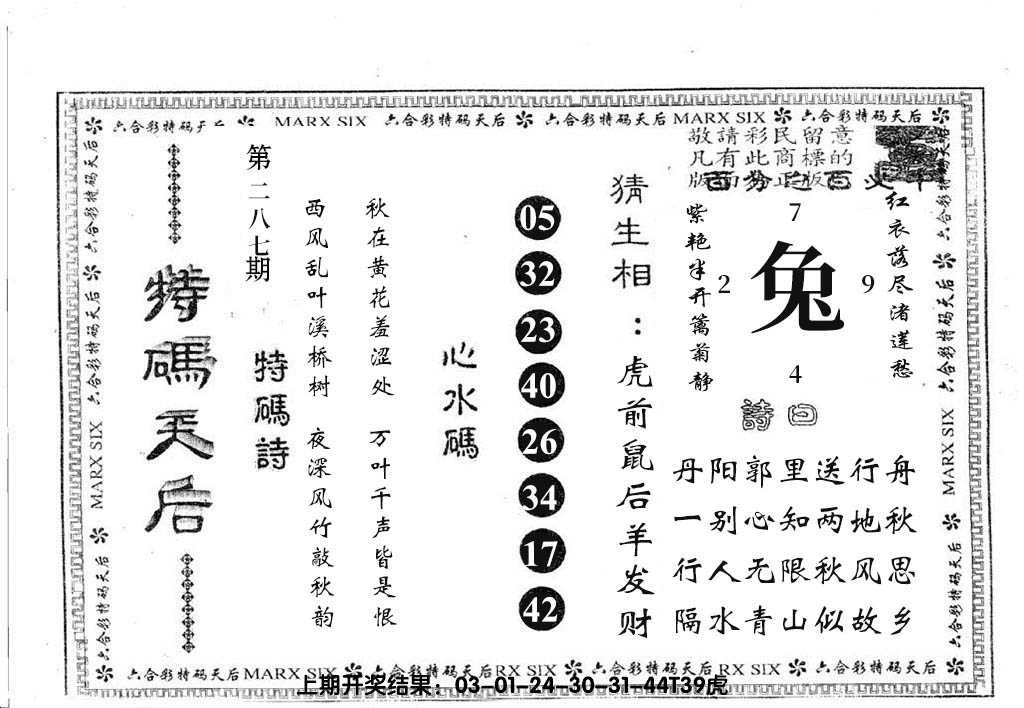 六合彩特码天后 MARX SIX 六合彩特码天后 六合彩特码天后 MARX SIX 六合彩特码天后
敬請彩民留意
凡有此商標的
版面为正版
红衣落尽渚莲愁
7
兔
2
9
4
紫艳半开篱菊静
詩曰
丹阳郭里送行舟
一别心知两地秋
行人无限秋风思
隔水青山似故乡
猜生相：虎前鼠后羊发财
05
32
23
40
26
34
17
42
心水碼
秋在黄花羞涩处 万叶千声皆是恨
西风乱叶溪桥树 夜深风竹敲秋韵
特碼詩
第二八七期
特碼天后
六合彩特码天后 六合彩特码天后 MARX SIX 六合彩特码天后
六合彩特码天后 六合彩特码天后 MARX SIX 六合彩特码天后
六合彩特码天后 MARX SIX 六合彩特码天后 RX SIX 六合彩特码天后 RX SIX 六合彩特码天后
上期开奖结果：03-01-24-30-31-44T39虎